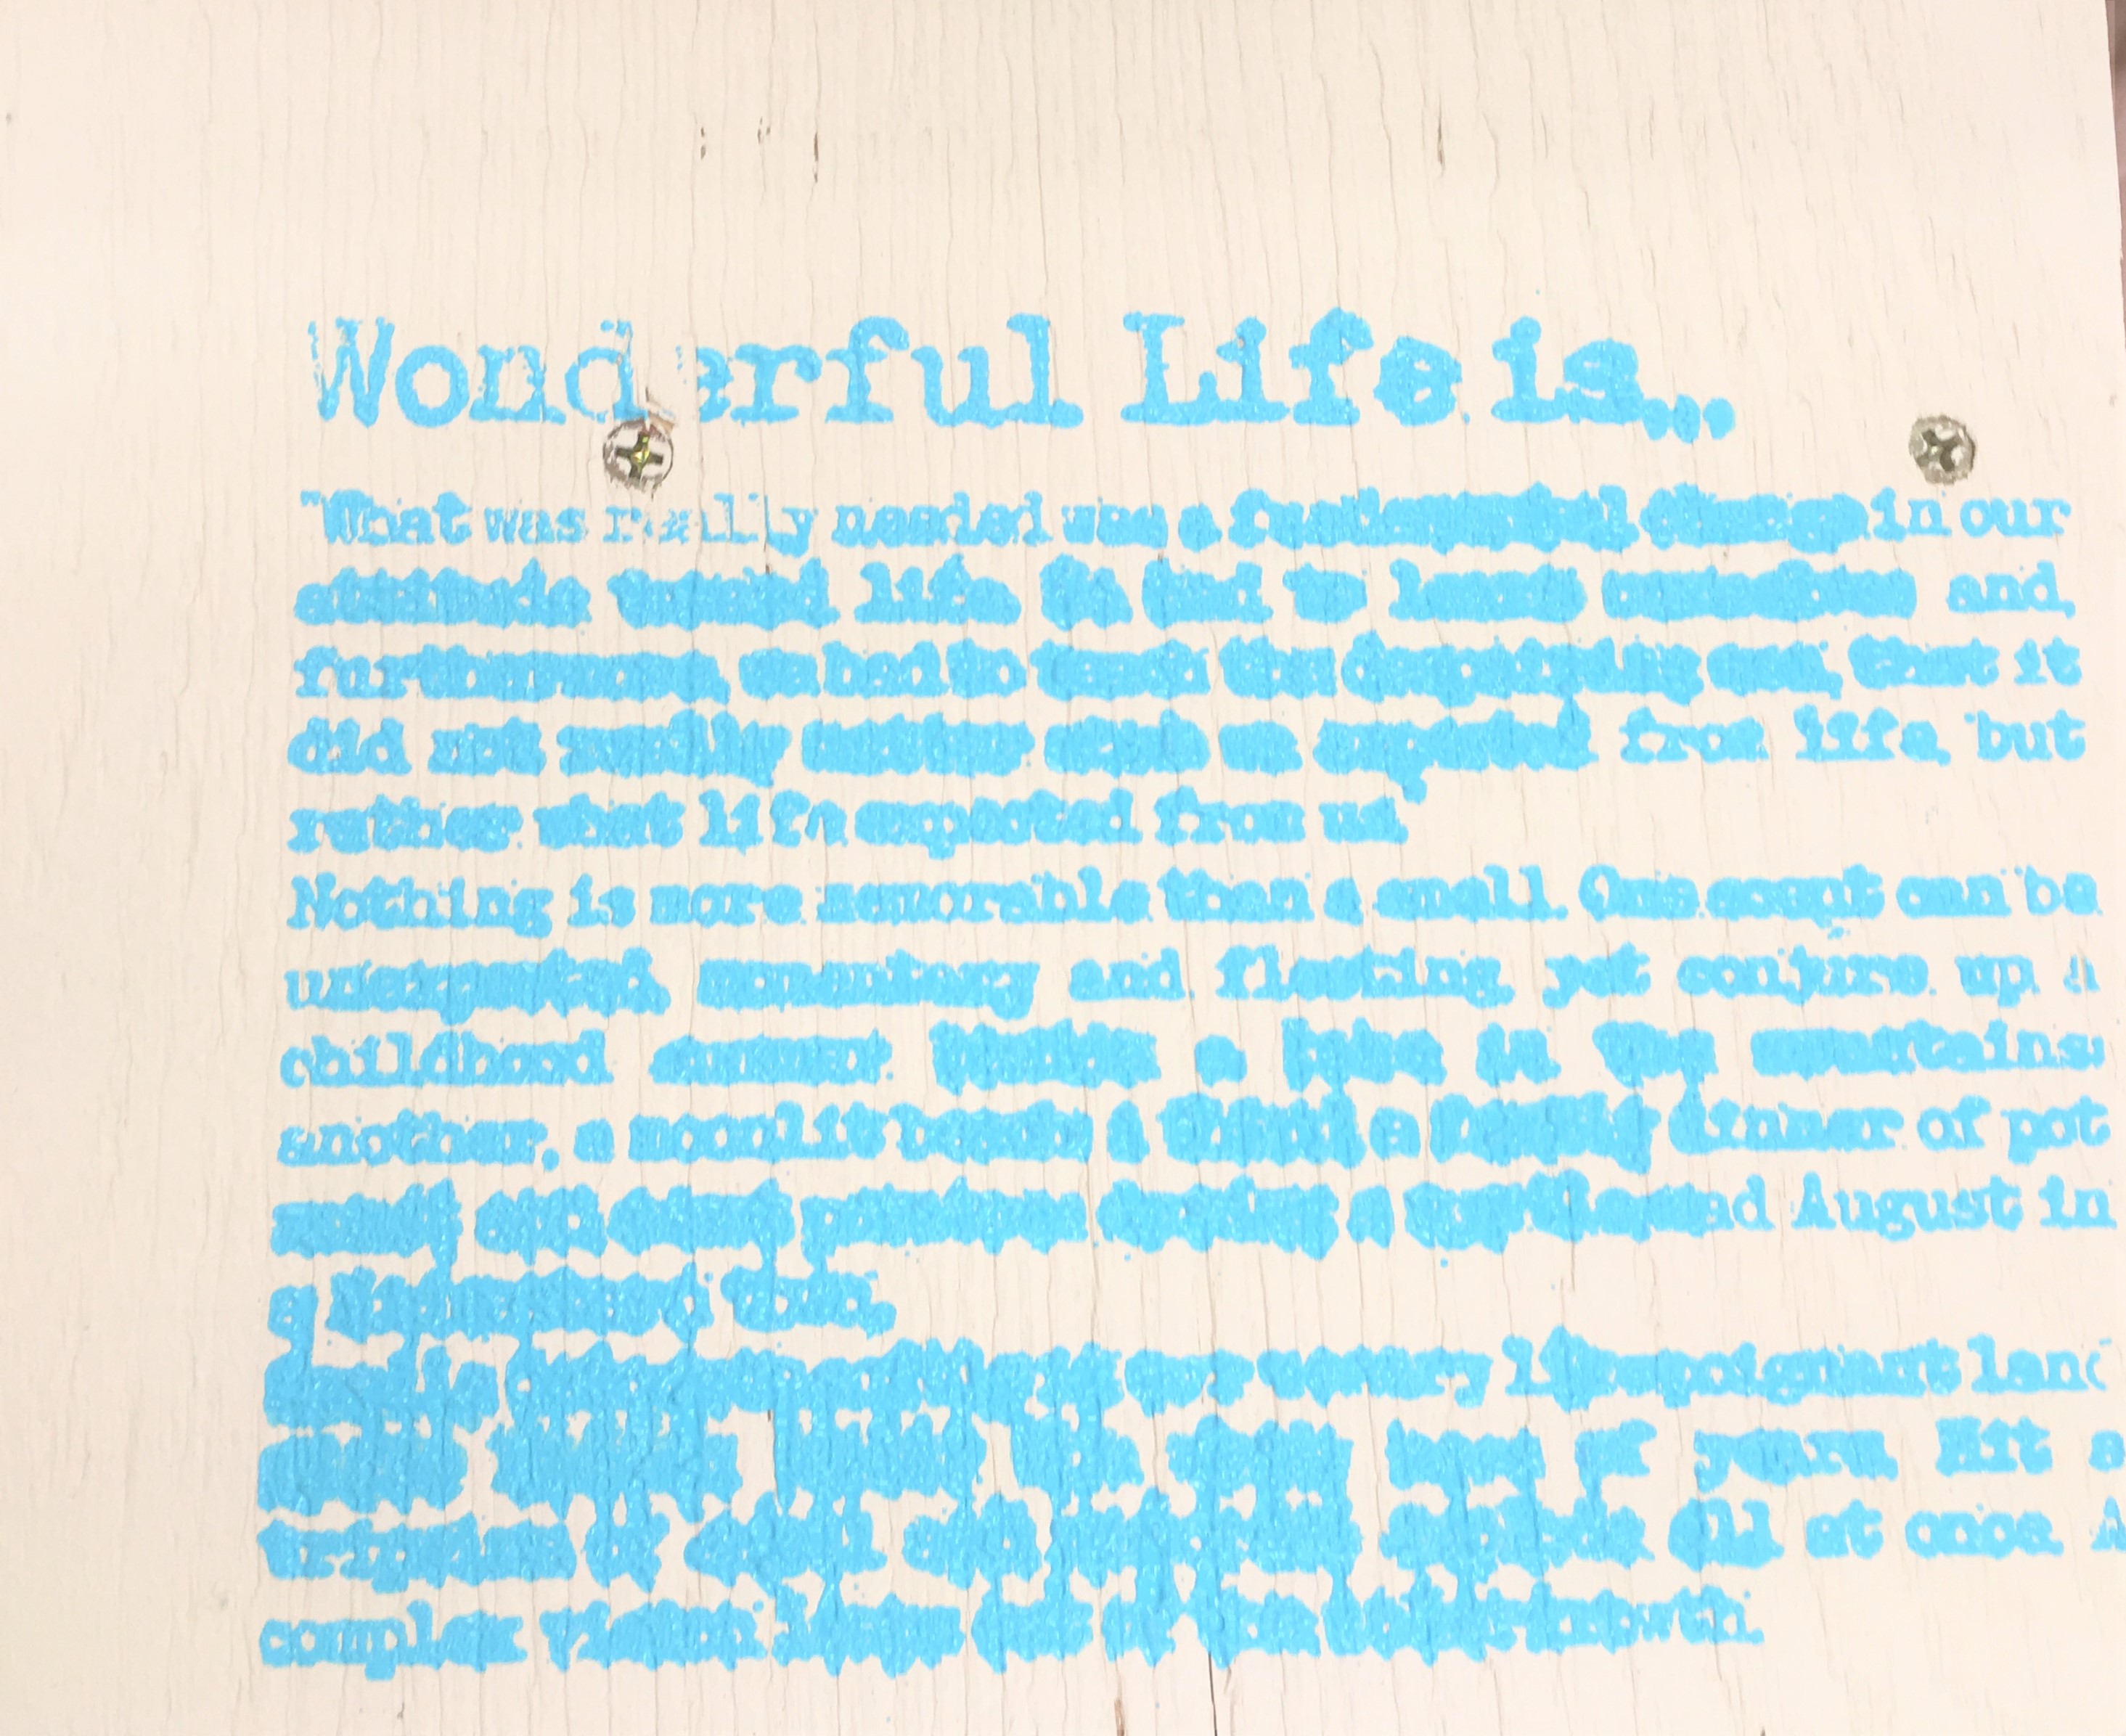 Wonderful Life is...
"What was really needed was a fundamental change in our
attitude toward life. had to learn ourselves and,
furthermore, we had to teach the despairing men, that it
did not really matter what we expected from life, but
rather what life expected from us."
Nothing is more memorable than a smell. One scent can be
unexpected, momentary and fleeting, yet conjure up a
childhood summer beside a lake in the mountains;
another, a moonlit beach; a third, a family dinner of pot
and sweet potatoes during a August in
a town.
our life poignant land
of years. Hit a
of all at once. A
complex vision leaps out of the undergrowth.